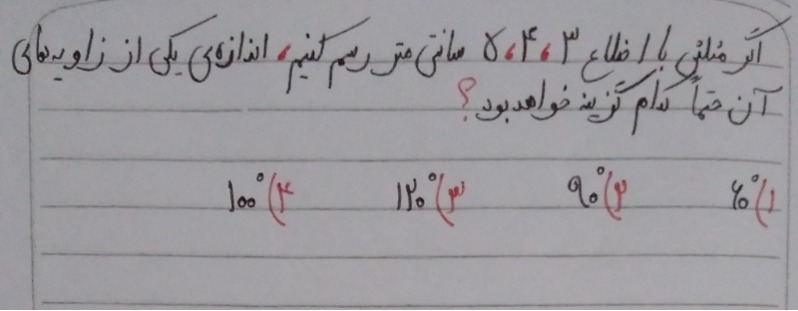 اگر مثلثی با اضلاع ۳، ۴، ۵ سانتی متر رسم کنیم، اندازه‌ی یکی از زاویه‌های
آن حتماً کدام گزینه خواهد بود؟
۱) ۶۰° ۲) ۹۰° ۳) ۱۲۰° ۴) ۱۰۰°